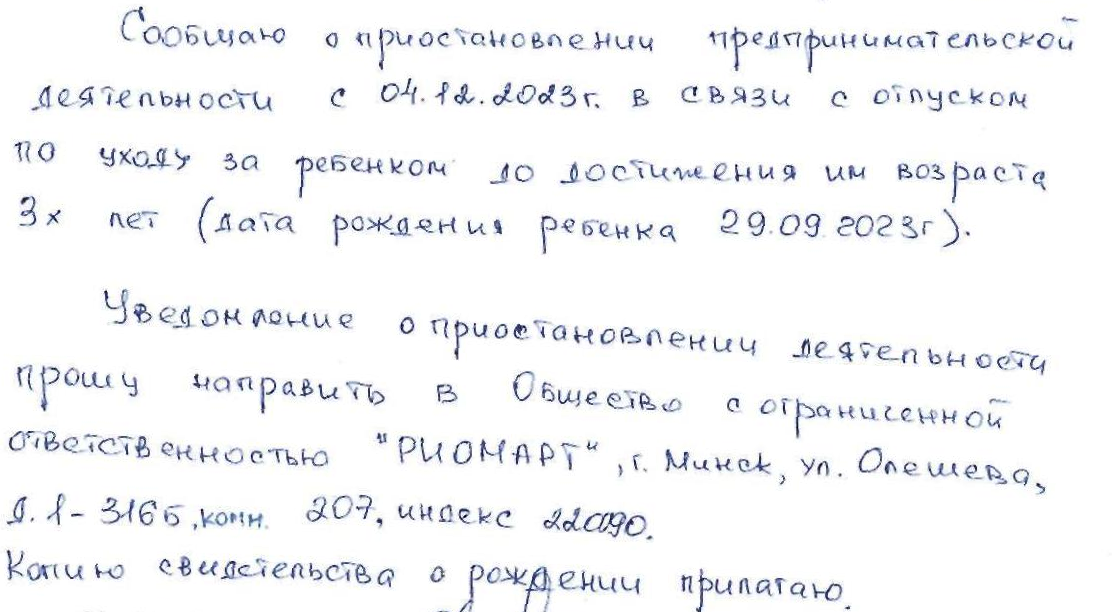 Сообщаю о приостановлении предпринимательской
деятельности с 04.12.2023г. в связи с отпуском
по уходу за ребенком до достижения им возраста
3х лет (дата рождения ребенка 29.09.2023г).
Уведомление о приостановлении деятельности
прошу направить в Общество с ограниченной
ответственностью "РИОМАРТ", г. Минск, ул. Олешева,
д. 1-316Б, комн. 207, индекс 220090.
Копию свидетельства о рождении прилагаю.